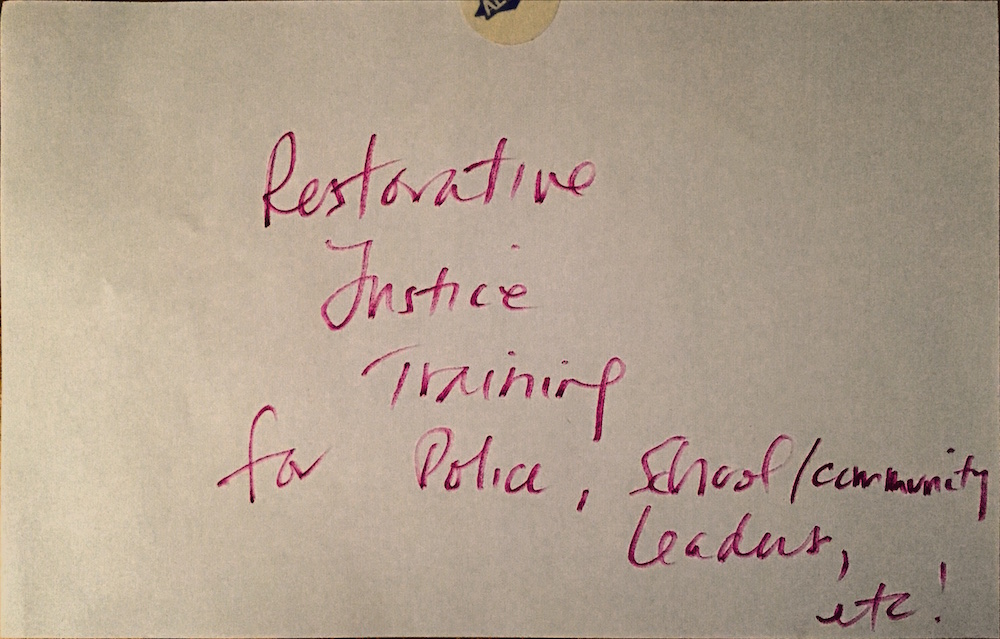 Restorative
Justice
Training
for Police, School/community
leaders,
etc!